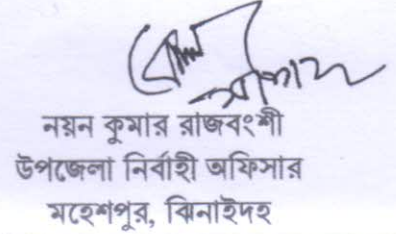 নয়ন কুমার রাজবংশী
উপজেলা নির্বাহী অফিসার
মহেশপুর, ঝিনাইদহ